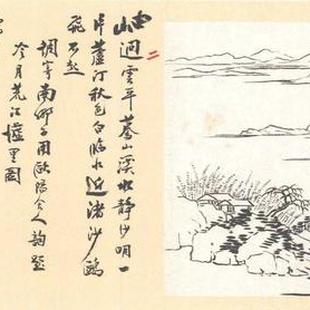 二
山迴雲平暮山溪水靜沙明一
片蘆汀秋色白臨水近渚沙鷗
飛不起
調寄南鄉子用歐陽舍人韵題
冷月荒江里圖